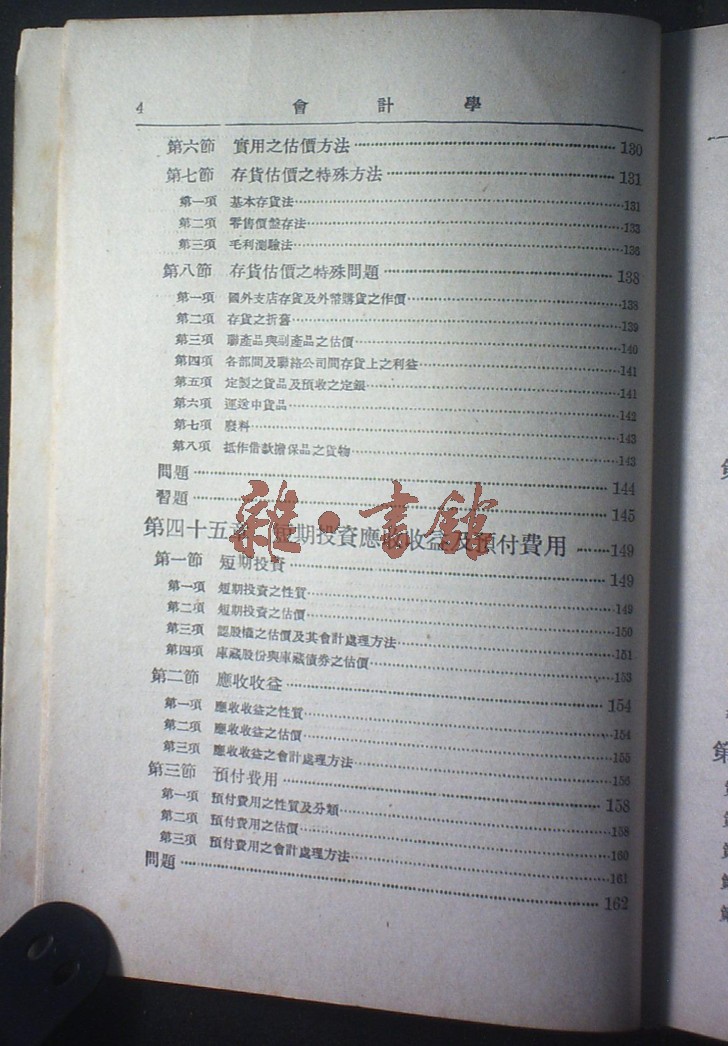 4 會計學
第六節 實用之估價方法 130
第七節 存貨估價之特殊方法 131
第一項 基本存貨法 131
第二項 零售價盤存法 133
第三項 毛利測驗法 136
第八節 存貨估價之特殊問題 138
第一項 國外支店存貨及外幣購貨之作價 138
第二項 存貨之折舊 139
第三項 聯產品與副產品之估價 140
第四項 各部間及聯絡公司間存貨上之利益 141
第五項 定製之貨品及預收之定銀 141
第六項 運送中貨品 142
第七項 廢料 143
第八項 抵作借款擔保品之貨物 143
問題 144
習題 145
雜·書館
第四十五章 短期投資應收收益及預付費用 149
第一節 短期投資 149
第一項 短期投資之性質 149
第二項 短期投資之估價 150
第三項 認股權之估價及其會計處理方法 151
第四項 庫藏股份與庫藏債券之估價 153
第二節 應收收益 154
第一項 應收收益之性質 154
第二項 應收收益之估價 155
第三項 應收收益之會計處理方法 156
第三節 預付費用 158
第一項 預付費用之性質及分類 158
第二項 預付費用之估價 160
第三項 預付費用之會計處理方法 161
問題 162